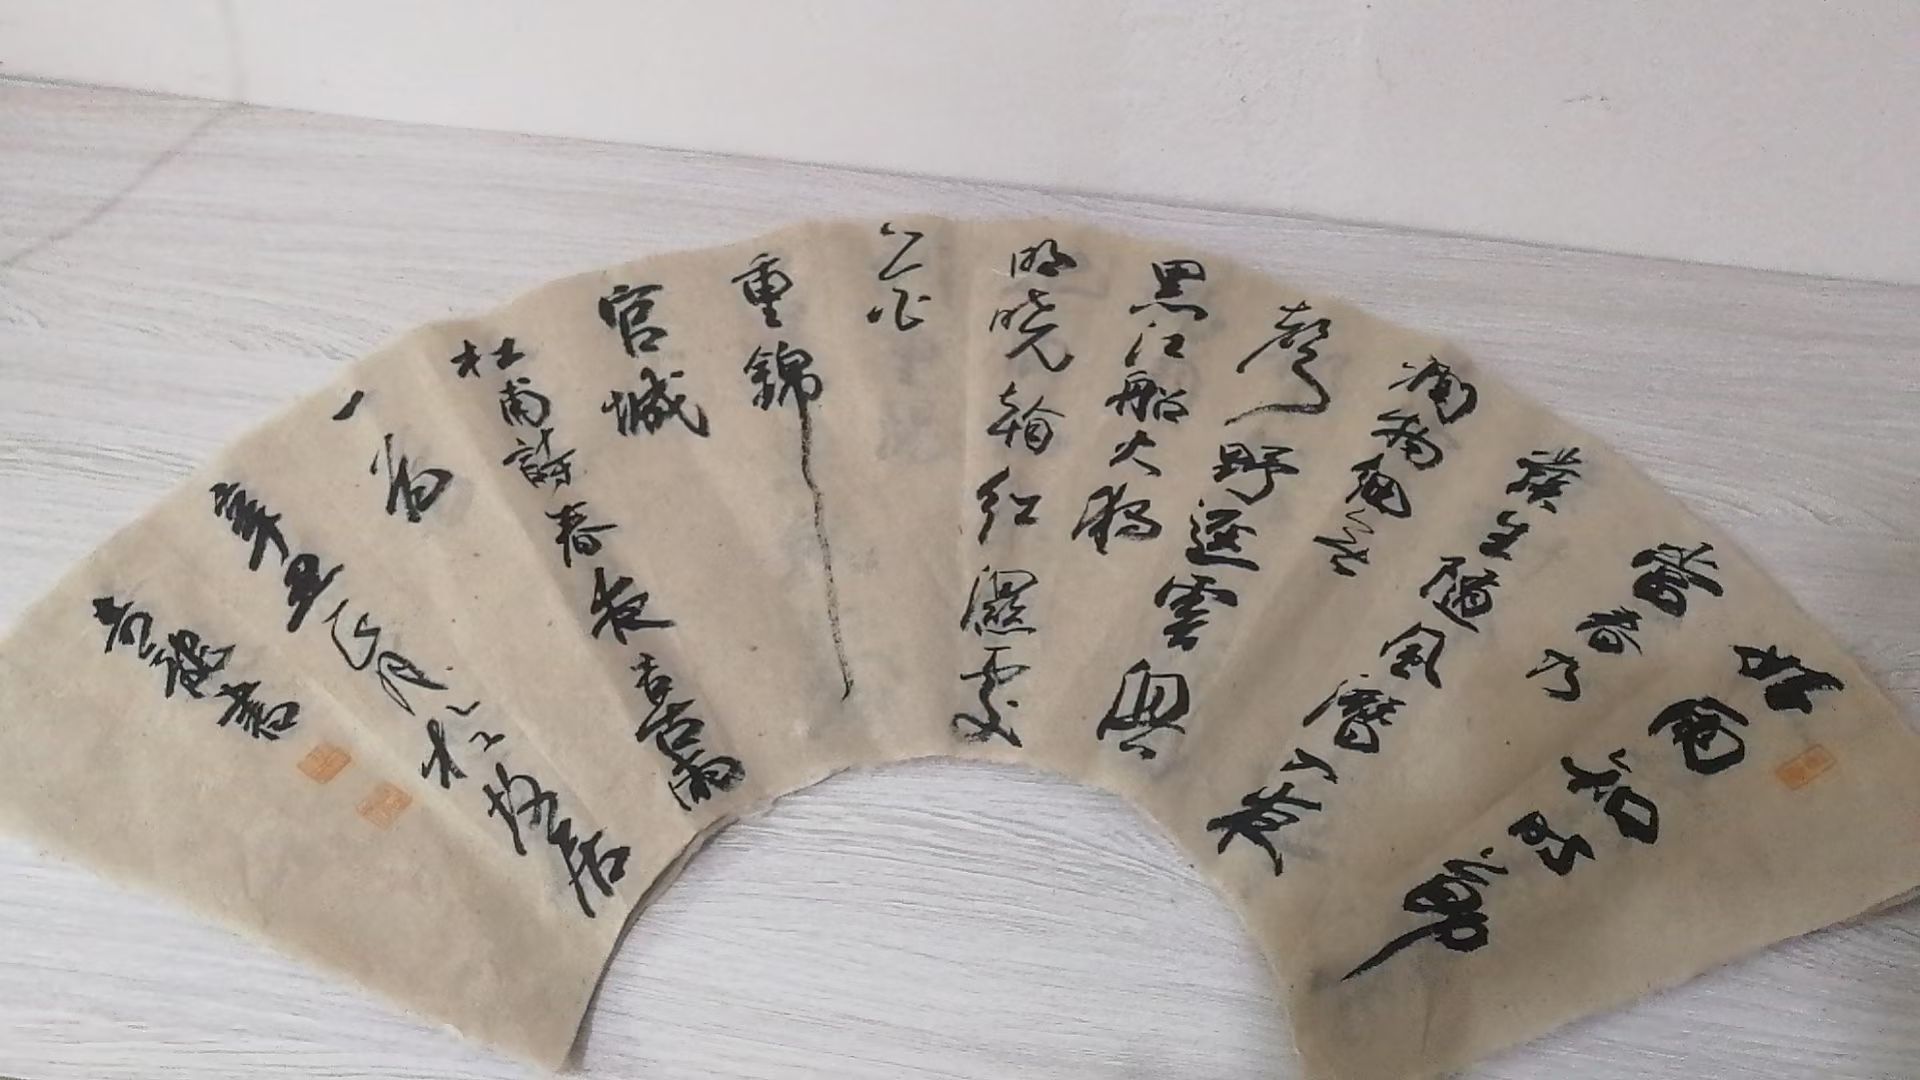 好雨知时節
當春乃
發生隨風潛入夜
潤物細無
聲野逕雲俱
黑江船火獨
明曉看紅濕處
花
重錦
官城
杜甫詩春夜喜雨
一首
辛丑正月於居
書